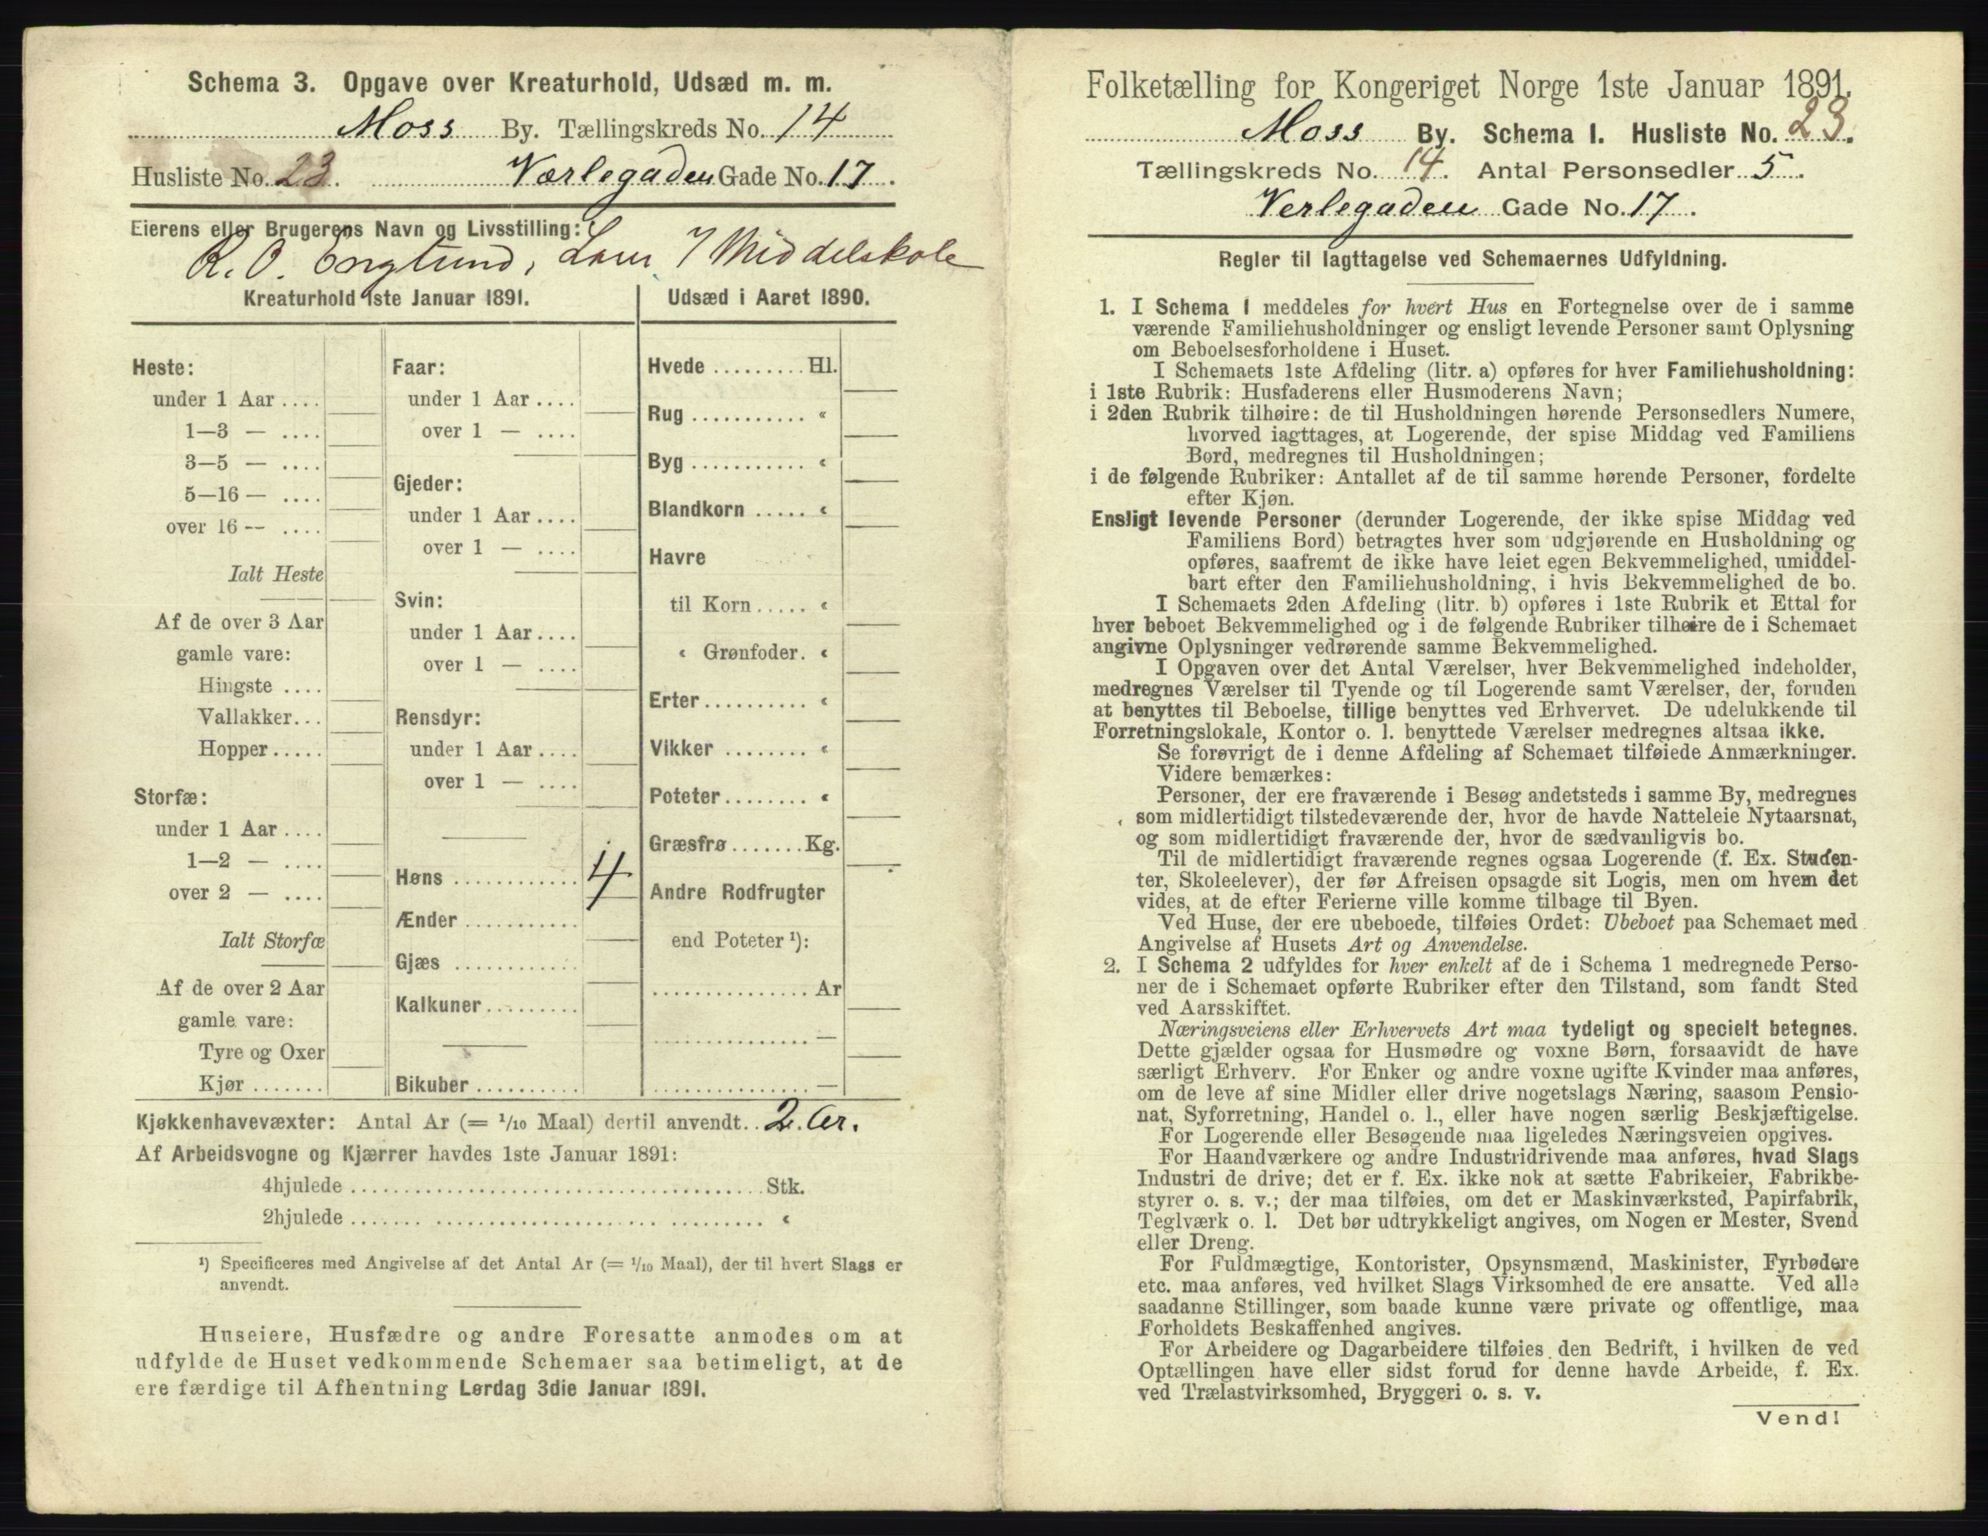 Schema 3. Opgave over Kreaturhold, Udsæd m. m.
Moss By. Tællingskreds No. 14
Husliste No. 23. Værlegaden Gade No. 17.
Eierens eller Brugerens Navn og Livsstilling:
R. O. Englund, Middelskole
Kreaturhold 1ste Januar 1891.
Heste:
under 1 Aar ....
1—3 — ....
3—5 — ....
5—16 — ....
over 16 -- ....
Ialt Heste
Af de over 3 Aar
gamle vare:
Hingste ....
Vallakker...
Hopper.....
Storfæ:
under 1 Aar ....
1—2 — ....
over 2 — ....
Ialt Storfæ
Af de over 2 Aar
gamle vare:
Tyre og Oxer
Kjør .......
Faar:
under 1 Aar ....
over 1 — ....
Gjeder:
under 1 Aar ....
over 1 — ....
Svin:
under 1 Aar ....
over 1 — ....
Rensdyr:
under 1 Aar ....
over 1 — ....
Høns ............ 4
Ænder ...........
Gjæs ............
Kalkuner.........
Bikuber ..........
Udsæd i Aaret 1890.
Hvede ........ Hl.
Rug ........... «
Byg ........... «
Blandkorn ..... «
Havre
til Korn ..... «
« Grønfoder. «
Erter.......... «
Vikker ........ «
Poteter........ «
Græsfrø....... Kg.
Andre Rodfrugter
end Poteter ¹):
............... Ar
............... —
............... —
Kjøkkenhavevæxter: Antal Ar (= 1/10 Maal) dertil anvendt.. 2 Ar.
Af Arbeidsvogne og Kjærrer havdes 1ste Januar 1891:
4hjulede ........................................ Stk.
2hjulede ........................................ «
¹) Specificeres med Angivelse af det Antal Ar (= 1/10 Maal), der til hvert Slags er
anvendt.
Huseiere, Husfædre og andre Foresatte anmodes om at
udfylde de Huset vedkommende Schemaer saa betimeligt, at de
ere færdige til Afhentning Lørdag 3die Januar 1891.
Folketælling for Kongeriget Norge 1ste Januar 1891.
Moss By. Schema 1. Husliste No. 23.
Tællingskreds No. 14. Antal Personsedler 5.
Verlegaden Gade No. 17.
Regler til Iagttagelse ved Schemaernes Udfyldning.
1. I Schema 1 meddeles for hvert Hus en Fortegnelse over de i samme
værende Familiehusholdninger og ensligt levende Personer samt Oplysning
om Beboelsesforholdene i Huset.
I Schemaets 1ste Afdeling (litr. a) opføres for hver Familiehusholdning:
i 1ste Rubrik: Husfaderens eller Husmoderens Navn;
i 2den Rubrik tilhøire: de til Husholdningen hørende Personsedlers Numere,
hvorved iagttages, at Logerende, der spise Middag ved Familiens
Bord, medregnes til Husholdningen;
i de følgende Rubriker: Antallet af de til samme hørende Personer, fordelte
efter Kjøn.
Ensligt levende Personer (derunder Logerende, der ikke spise Middag ved
Familiens Bord) betragtes hver som udgjørende en Husholdning og
opføres, saafremt de ikke have leiet egen Bekvemmelighed, umiddel-
bart efter den Familiehusholdning, i hvis Bekvemmelighed de bo.
I Schemaets 2den Afdeling (litr. b) opføres i 1ste Rubrik et Ettal for
hver beboet Bekvemmelighed og i de følgende Rubriker tilhøire de i Schemaet
angivne Oplysninger vedrørende samme Bekvemmelighed.
I Opgaven over det Antal Værelser, hver Bekvemmelighed indeholder,
medregnes Værelser til Tyende og til Logerende samt Værelser, der, foruden
at benyttes til Beboelse, tillige benyttes ved Erhvervet. De udelukkende til
Forretningslokale, Kontor o. l. benyttede Værelser medregnes altsaa ikke.
Se forøvrigt de i denne Afdeling af Schemaet tilføiede Anmærkninger.
Videre bemærkes:
Personer, der ere fraværende i Besøg andetsteds i samme By, medregnes
som midlertidigt tilstedeværende der, hvor de havde Natteleie Nytaarsnat,
og som midlertidigt fraværende der, hvor de sædvanligvis bo.
Til de midlertidigt fraværende regnes ogsaa Logerende (f. Ex. Studen-
ter, Skoleelever), der før Afreisen opsagde sit Logis, men om hvem det
vides, at de efter Ferierne ville komme tilbage til Byen.
Ved Huse, der ere ubeboede, tilføies Ordet: Ubeboet paa Schemaet med
Angivelse af Husets Art og Anvendelse.
2. I Schema 2 udfyldes for hver enkelt af de i Schema 1 medregnede Perso-
ner de i Schemaet opførte Rubriker efter den Tilstand, som fandt Sted
ved Aarsskiftet.
Næringsveiens eller Erhvervets Art maa tydeligt og specielt betegnes.
Dette gjælder ogsaa for Husmødre og voxne Børn, forsaavidt de have
særligt Erhverv. For Enker og andre voxne ugifte Kvinder maa anføres,
om de leve af sine Midler eller drive nogetslags Næring, saasom Pensio-
nat, Syforretning, Handel o. l., eller have nogen særlig Beskjæftigelse.
For Logerende eller Besøgende maa ligeledes Næringsveien opgives.
For Haandværkere og andre Industridrivende maa anføres, hvad Slags
Industri de drive; det er f. Ex. ikke nok at sætte Fabrikeier, Fabrikbe-
styrer o. s. v.; der maa tilføies, om det er Maskinværksted, Papirfabrik,
Teglværk o. l. Det bør udtrykkeligt angives, om Nogen er Mester, Svend
eller Dreng.
For Fuldmægtige, Kontorister, Opsynsmænd, Maskinister, Fyrbødere
etc. maa anføres, ved hvilket Slags Virksomhed de ere ansatte. Ved alle
saadanne Stillinger, som baade kunne være private og offentlige, maa
Forholdets Beskaffenhed angives.
For Arbeidere og Dagarbeidere tilføies den Bedrift, i hvilken de ved
Optællingen have eller sidst forud for denne havde Arbeide, f. Ex.
ved Trælastvirksomhed, Bryggeri o. s. v.
Vend!